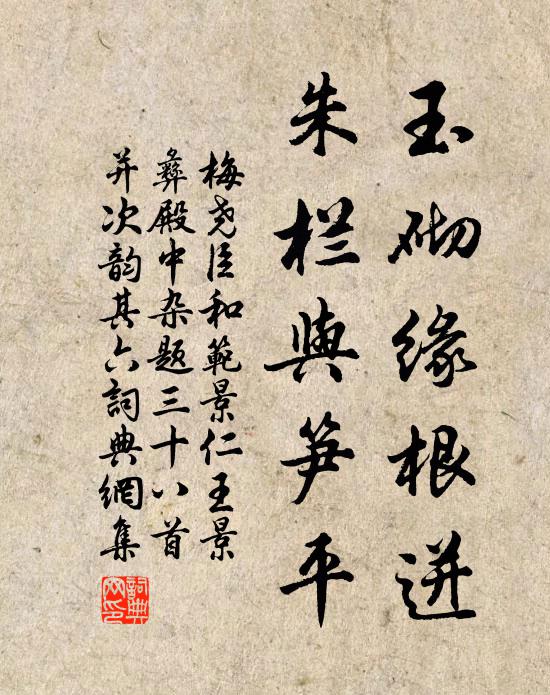 玉砌缘根迸
朱栏與笋平
梅尧臣和範景仁王景
彝殿中杂题三十八首
并次韵其六詞典網集
詞典網印